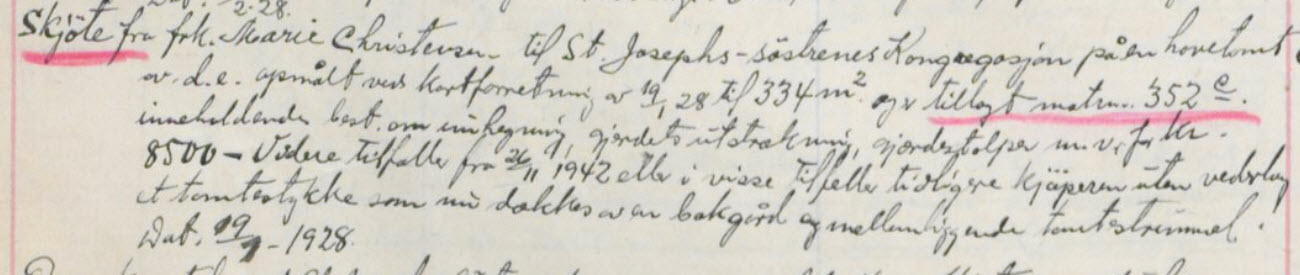 2.28.
Skjöte fra frk. Marie Christensen til St. Josephs-söstrenes Kongregasjon på en hovetomt
av d.e. opmålt ved kartforretning av 19/1 28 til 334 m². og er tillagt matrnr. 352 e.
inneholdende best. om innhegning, gjerdets utstrekning, gjerdestolper m.v. for kr.
8500 - Videre tilfaller fra 26/11 1942 eller i visse tilfeller tidligere kjöperen uten vederlag
et tomtestykke som nu dekkes av en bakgård og mellemliggende tomtestrimmel.
Dat. 19/9 - 1928.